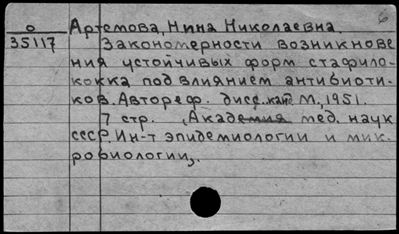 6
О Артемова, Нина Николаевна.
35117 Закономерности возникнове
ния устойчивых форм стафило-
кокка под влиянием антибиоти-
ков. Автореф. дисс. канд М., 1951.
7 стр. (Академия мед. наук
СССР. Ин-т эпидемиологии и мик-
робиологии).